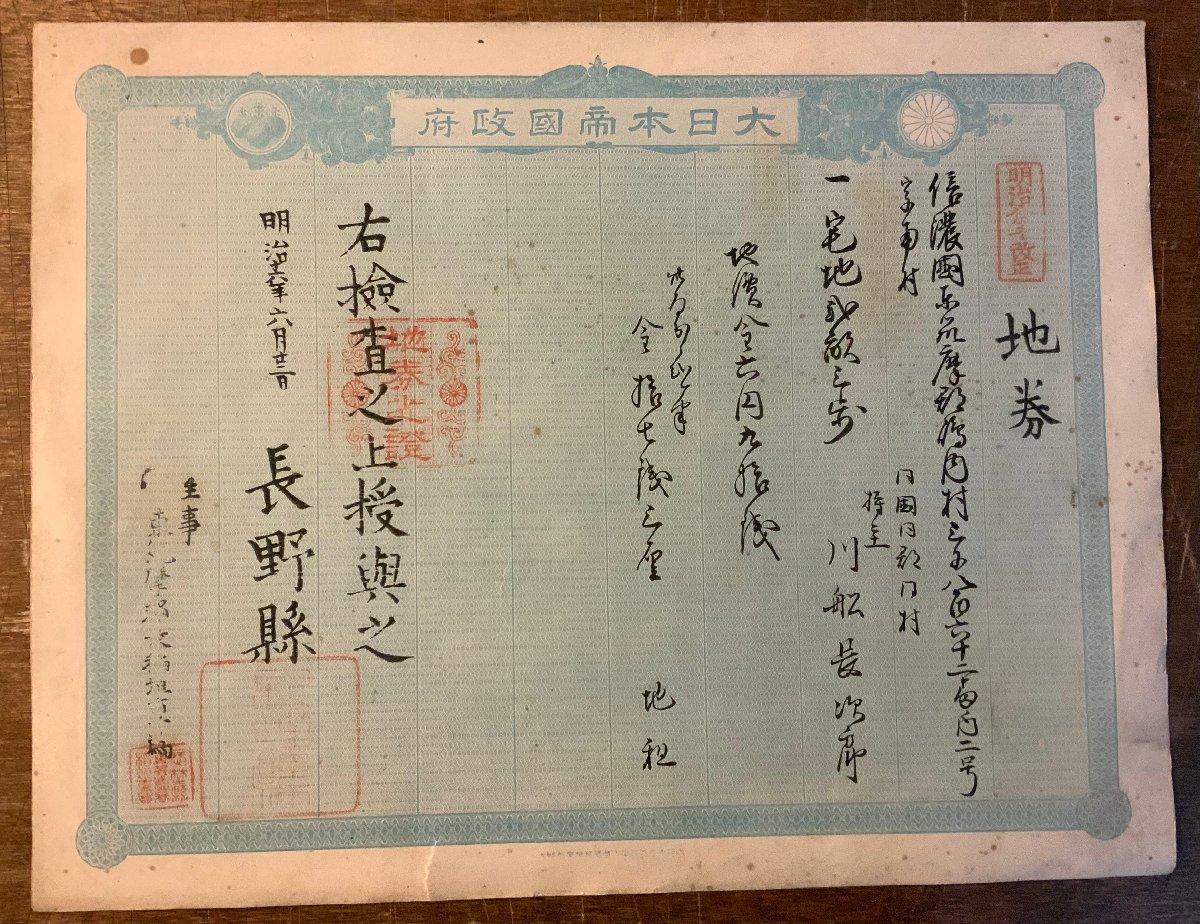 大日本帝國政府
地券
信濃國東筑摩郡嶋内村三千八百六十二番内二号
字南村
同國同郡同村
持主 川船長次郎
一宅地弐畝三歩
地價金六円九拾銭
此百分ノ二ケ半
金拾七銭三厘 地租
右檢査之上授與之
地券之證
明治十六年六月廿二日 長野縣
主事